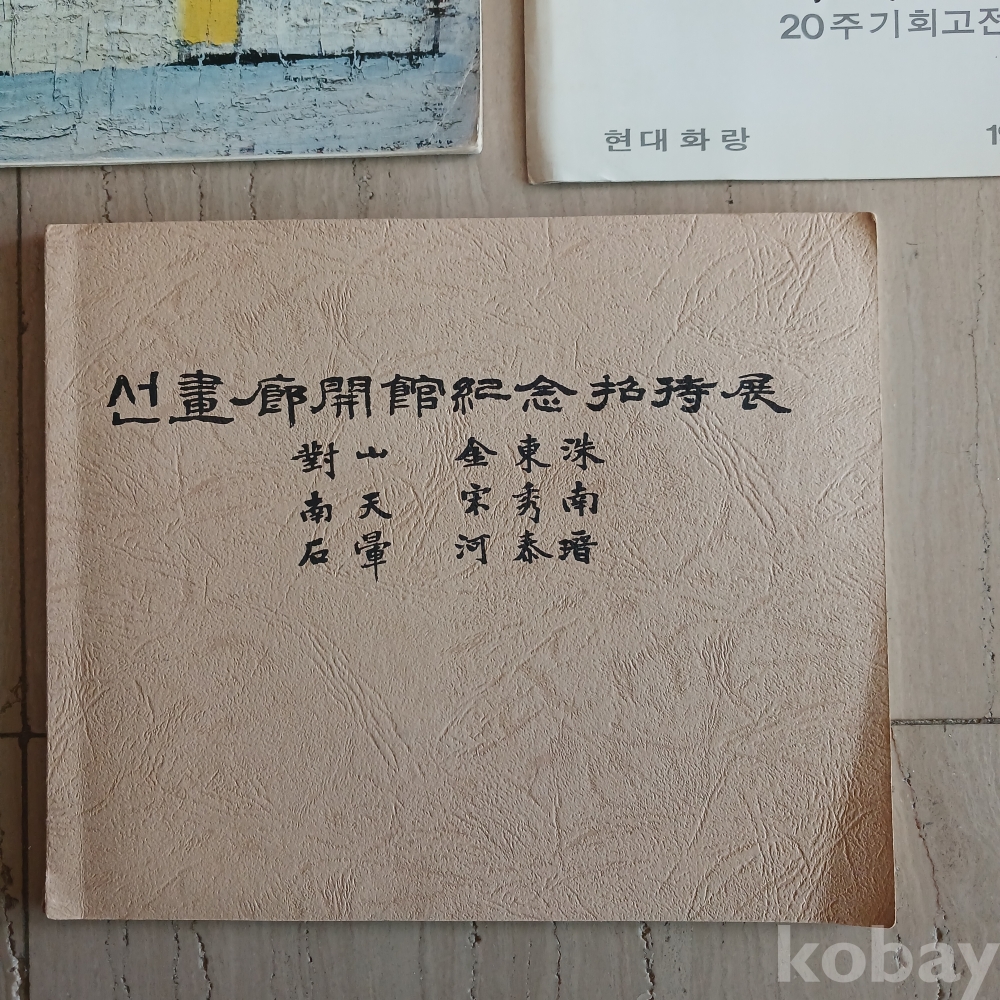 20주기회고전
현대화랑
1
선畫廊開館紀念招待展
對山 金東洙
南天 宋秀南
石暈 河泰瑨
kobay